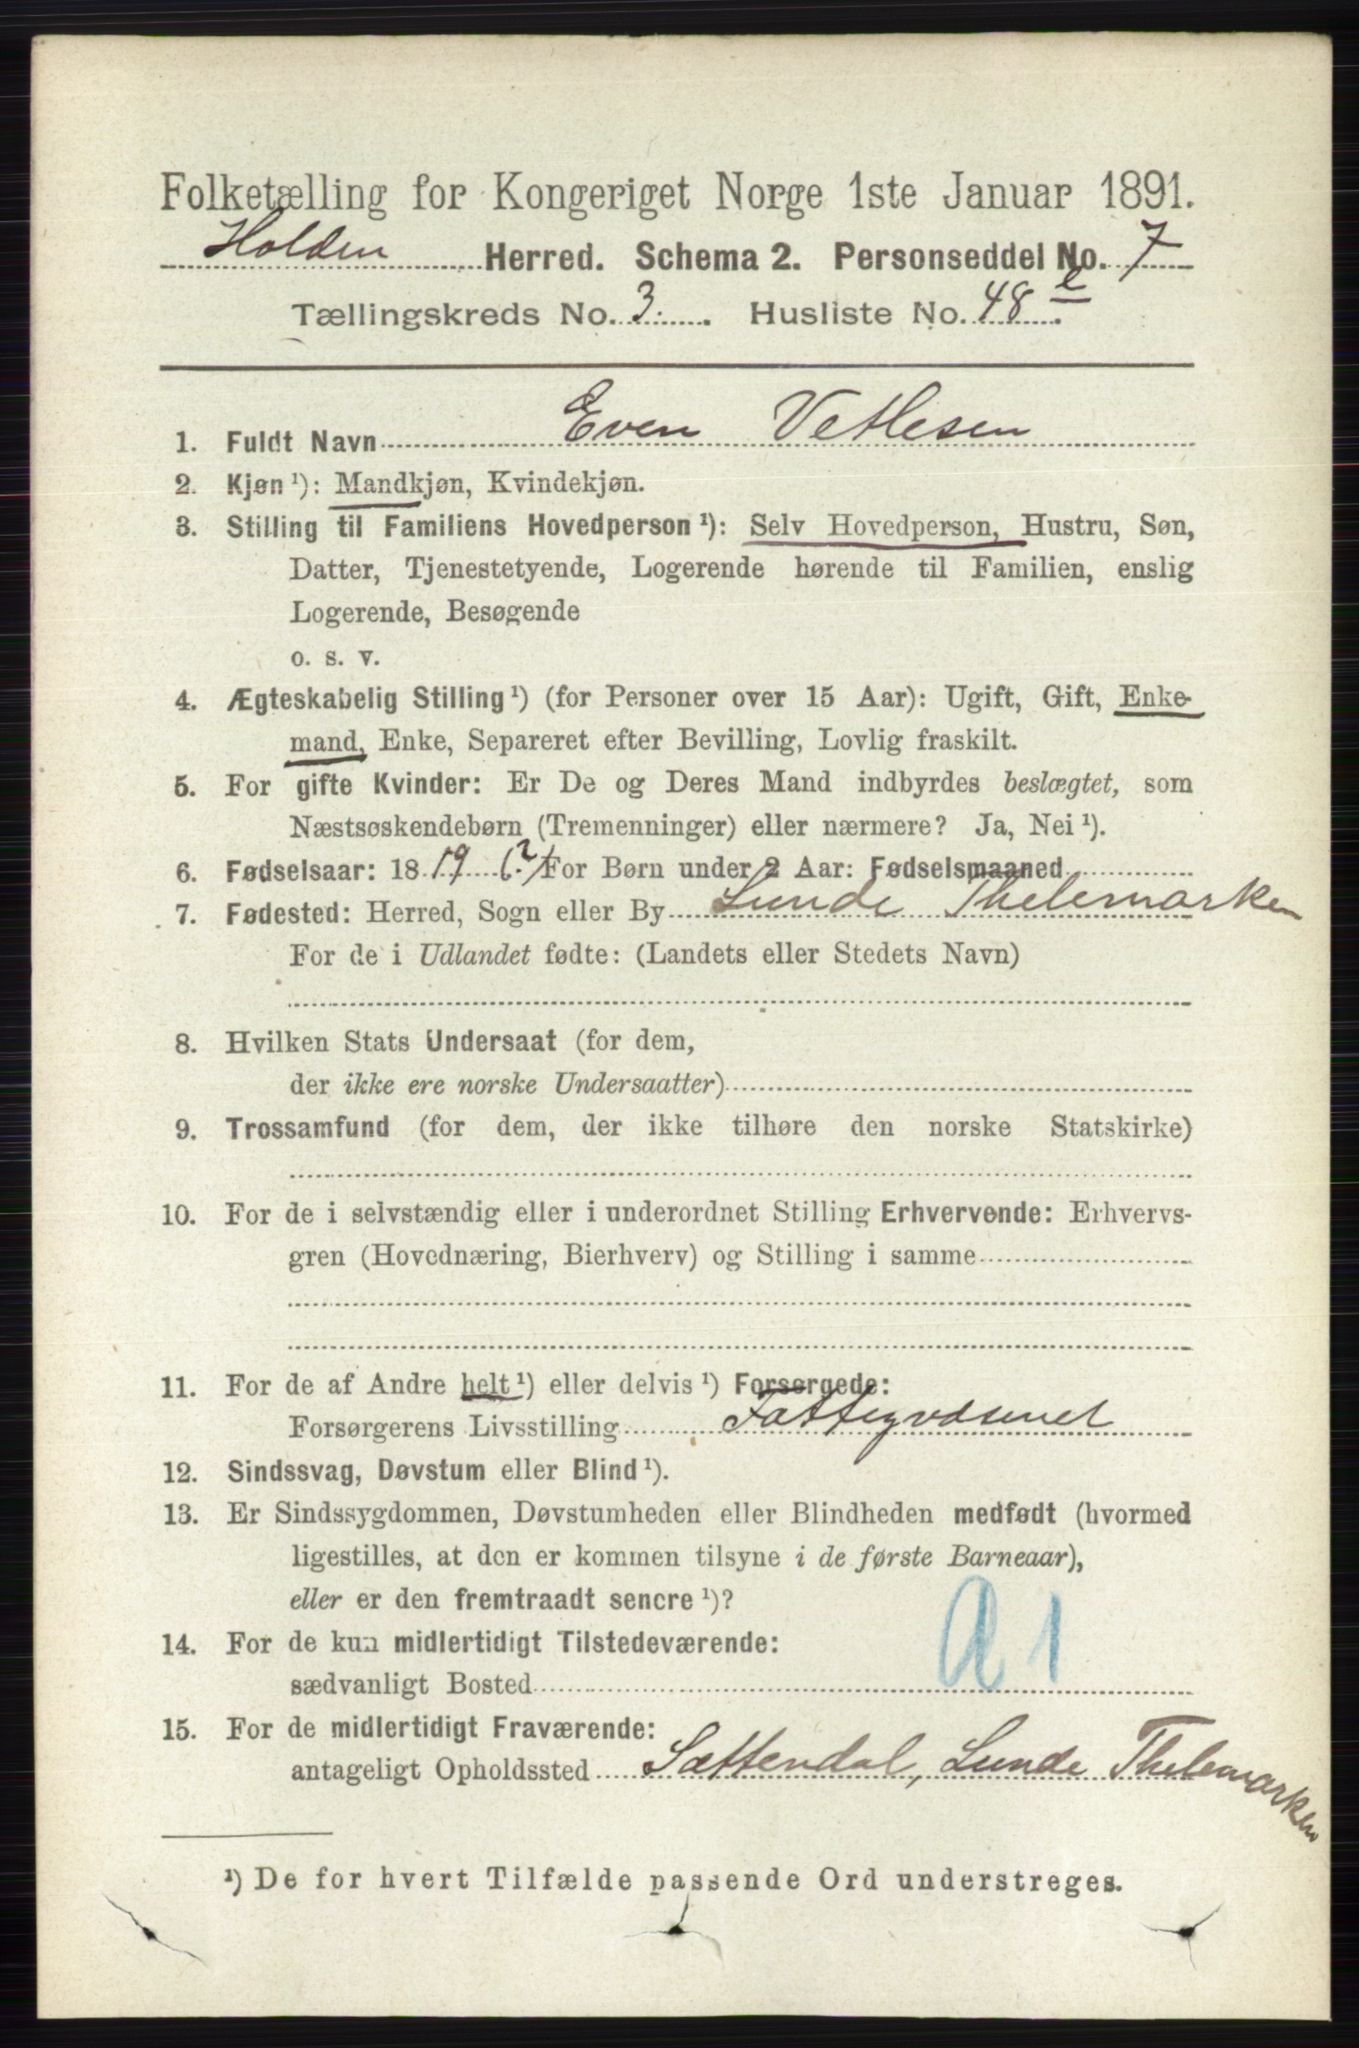 Folketælling for Kongeriget Norge 1ste Januar 1891.
Holden Herred. Schema 2. Personseddel No. 7
Tællingskreds No. 3. Husliste No. 48 e
1. Fuldt Navn Even Vetlesen
2. Kjøn ¹): Mandkjøn, Kvindekjøn.
3. Stilling til Familiens Hovedperson ¹): Selv Hovedperson, Hustru, Søn,
Datter, Tjenestetyende, Logerende hørende til Familien, enslig
Logerende, Besøgende
o. s. v.
4. Ægteskabelig Stilling ¹) (for Personer over 15 Aar): Ugift, Gift, Enke-
mand, Enke, Separeret efter Bevilling, Lovlig fraskilt.
5. For gifte Kvinder: Er De og Deres Mand indbyrdes beslægtet, som
Næstsøskendebørn (Tremenninger) eller nærmere? Ja, Nei ¹).
6. Fødselsaar: 1819 (?) For Børn under 2 Aar: Fødselsmaaned
7. Fødested: Herred, Sogn eller By Lunde Thelemarken
For de i Udlandet fødte: (Landets eller Stedets Navn)
8. Hvilken Stats Undersaat (for dem,
der ikke ere norske Undersaatter)
9. Trossamfund (for dem, der ikke tilhøre den norske Statskirke)
10. For de i selvstændig eller i underordnet Stilling Erhvervende: Erhvervs-
gren (Hovednæring, Bierhverv) og Stilling i samme
11. For de af Andre helt ¹) eller delvis ¹) Forsørgede:
Forsørgerens Livsstilling Fattigvæsenet
12. Sindssvag, Døvstum eller Blind ¹).
13. Er Sindssygdommen, Døvstumheden eller Blindheden medfødt (hvormed
ligestilles, at den er kommen tilsyne i de første Barneaar),
eller er den fremtraadt senere ¹)?
14. For de kun midlertidigt Tilstedeværende:
sædvanligt Bosted a 1
15. For de midlertidigt Fraværende:
antageligt Opholdssted Sættendal, Lunde Thelemarken
¹) De for hvert Tilfælde passende Ord understreges.